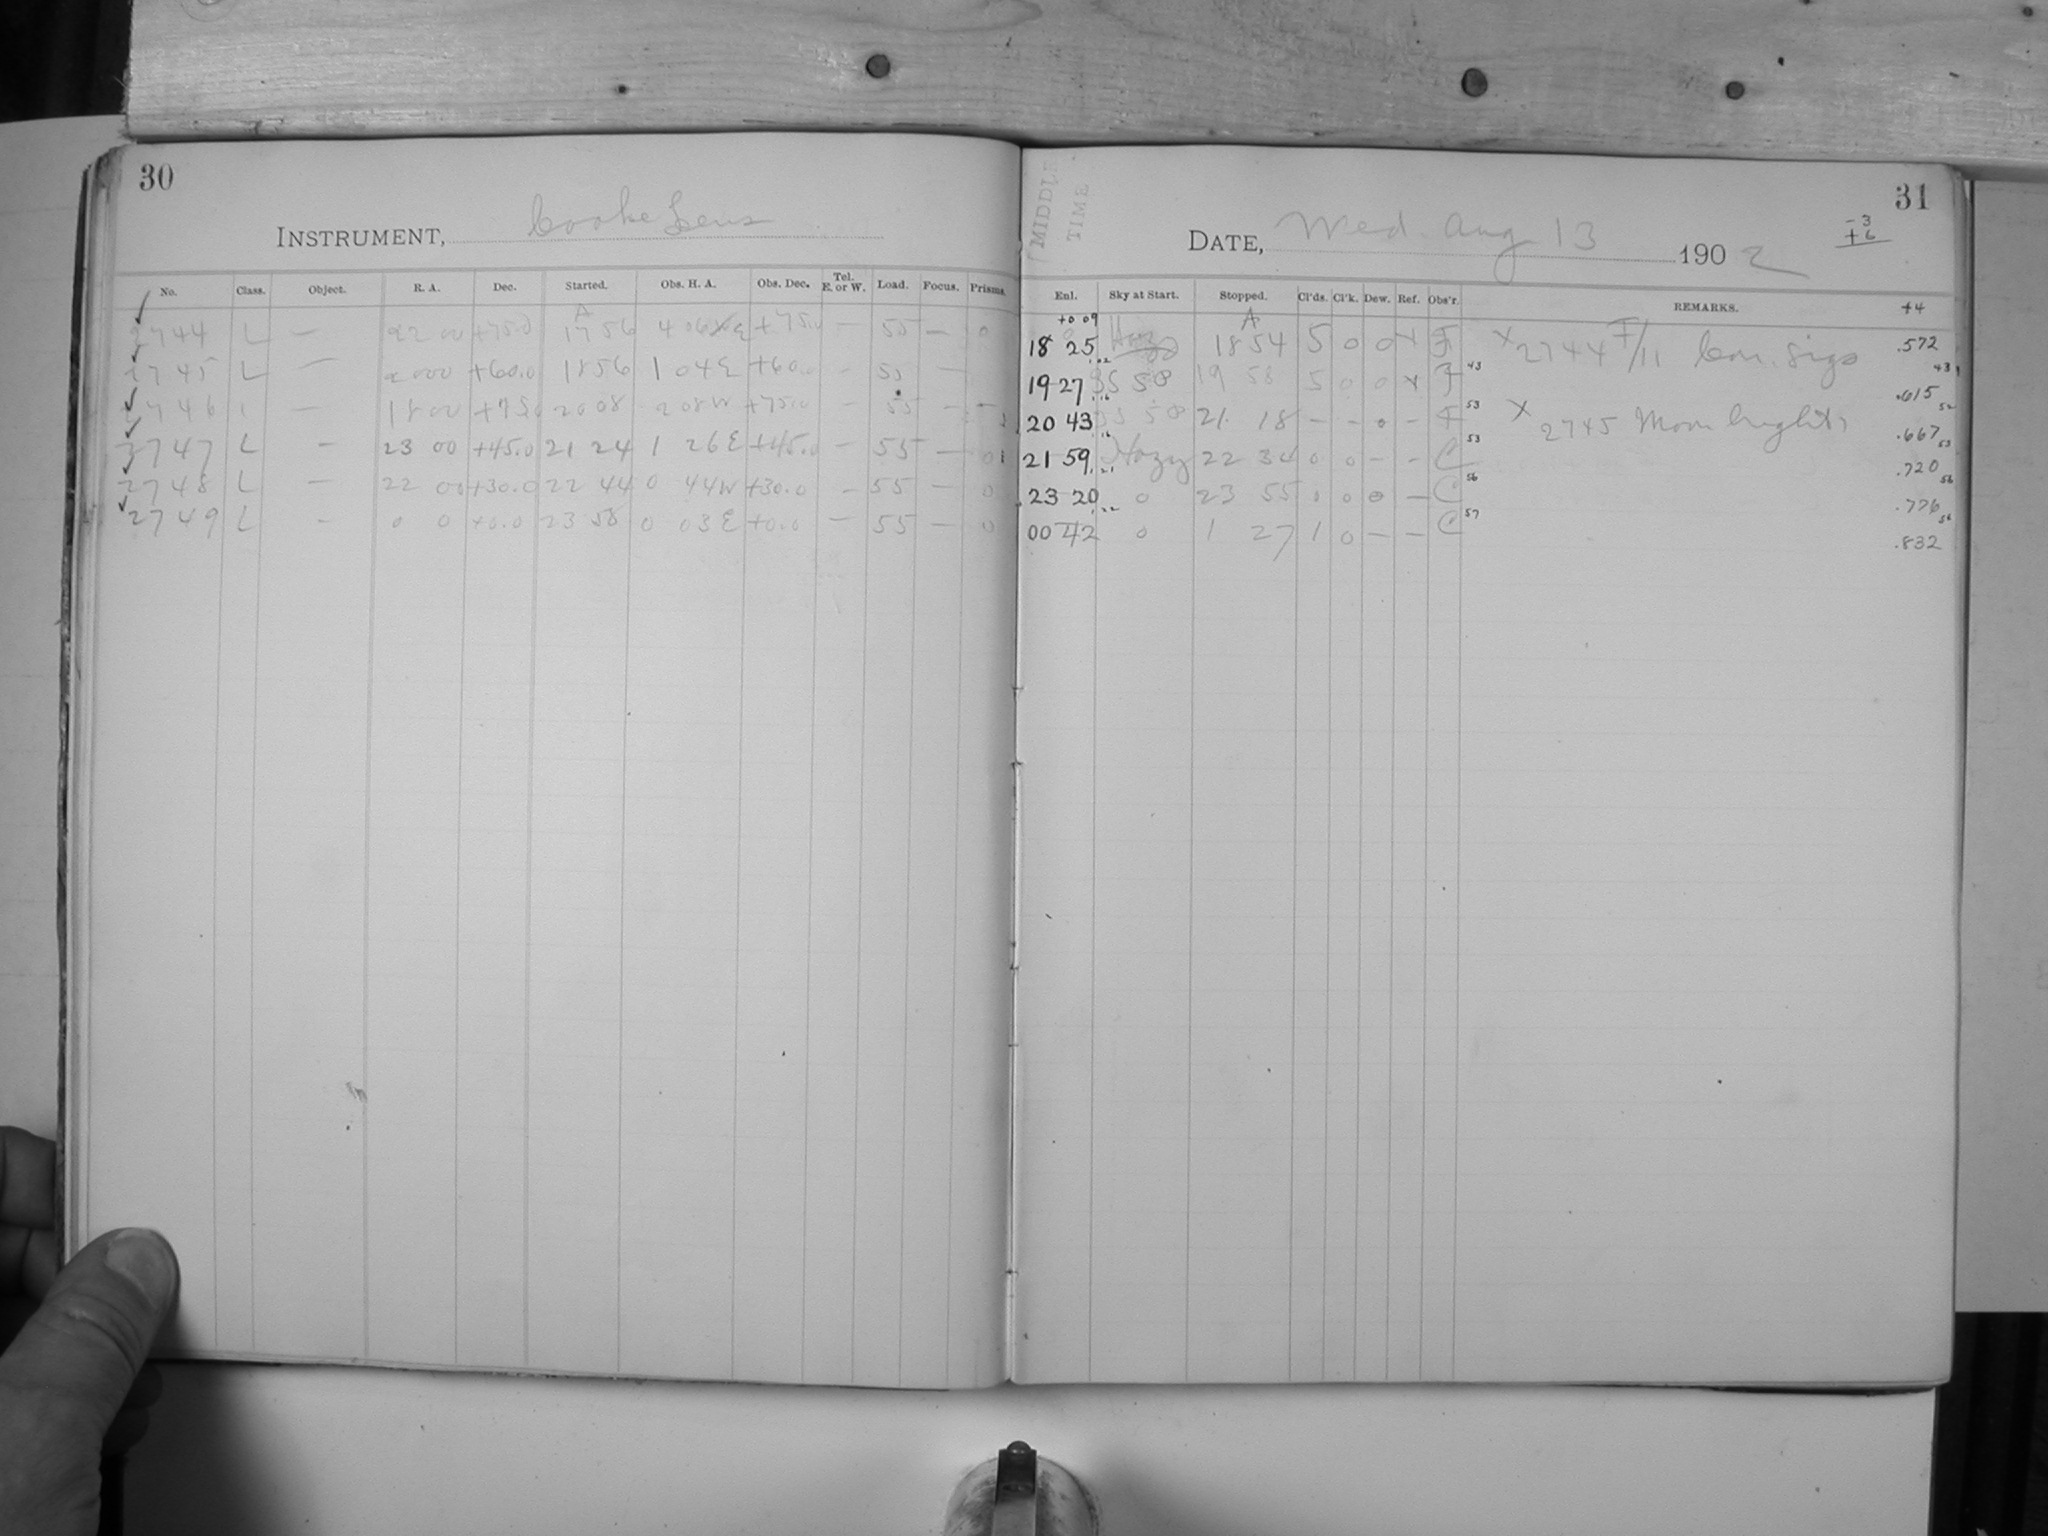 30
INSTRUMENT, Cooke Lens
No. Class. Object. R. A. Dec. Started. Obs. H. A. Obs. Dec. Tel. E. or W. Load. Focus. Prisms.
A
2744 L — 22 00 +75.0 17 56 4 06 E +75.0 — 55 — 0
2745 L — 2000 +60.0 1856 1 04 E +60.0 - 55 —
2746 L — 18 00 +75.0 2008 2 08 W +75.0 — 55 — —
2747 L — 23 00 +45.0 21 24 1 26 E +45.0 — 55 — 0
2748 L — 22 00 +30.0 22 44 0 44 W +30.0 — 55 — 0
2749 L — 0 0 +0.0 23 58 0 03 E +0.0 — 55 — 0
MIDDLE TIME
31
DATE, Wed. Aug 13 1902
-3
+6
Enl. Sky at Start. Stopped. Cl'ds. Cl'k. Dew. Ref. Obs'r. REMARKS. +4
+0 09 A
18 25 1854 5 0 0 x F x 2744 F/11 .572
19 27 S 58 19 58 5 0 0 x F 43 .615
20 43 S 58 21 18 — — 0 — F 53 x 2745 Moon bright .667
21 59 Hazy 22 34 0 0 — — C 53 .720
23 20 0 23 55 0 0 0 — C 56 .776
00 42 0 1 27 1 0 — — C 57 .832